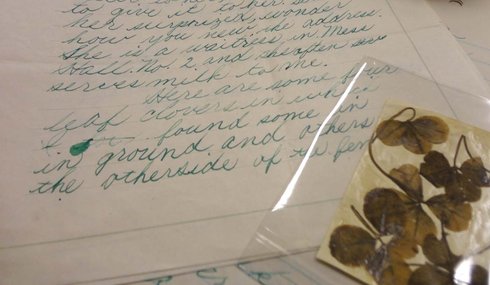 to give it to her. 
her surprized, wonder
how you new the address.
She is a waitress in Mess
Hall. No. 2 and she often
serves milk to me.
Here are some four
leaf clovers in which
I found some in
in ground and others
the otherside of the fen